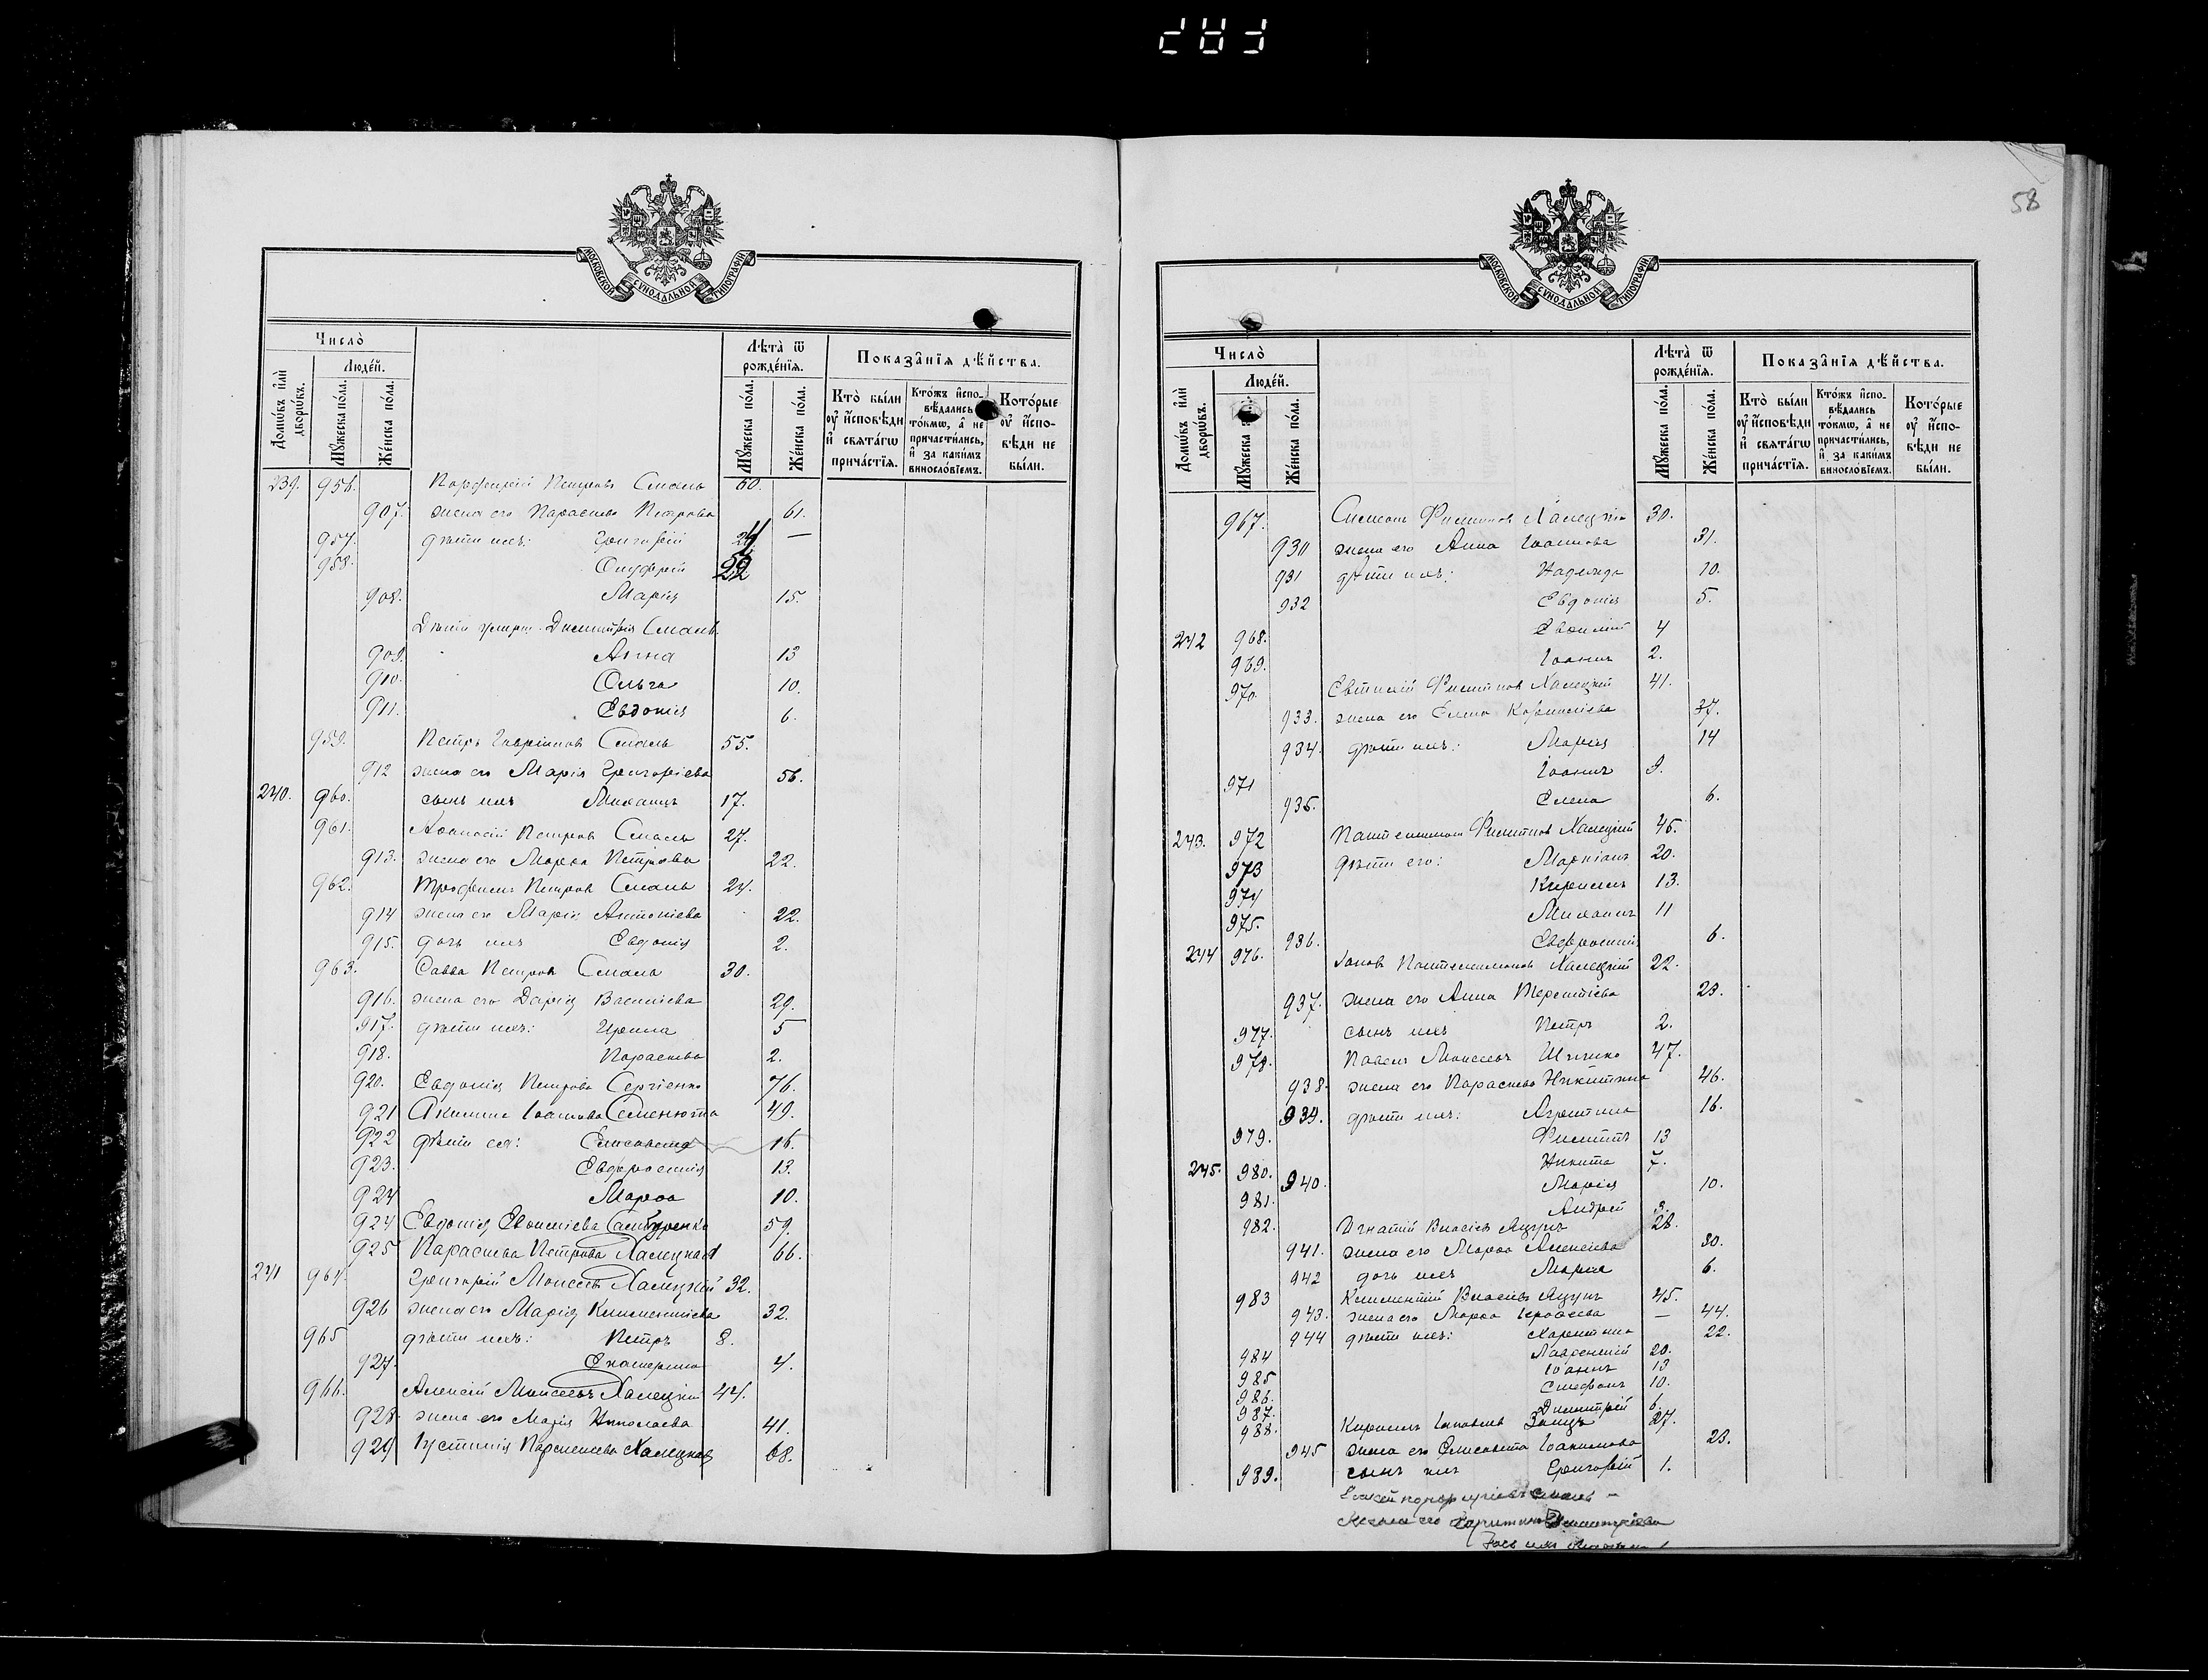 МОСКОВСКОЙ СУНОДАЛЬНОЙ ТИПОГРАФІИ
Число̀
Людей.
Домѡвъ и҆лѝ дворѡвъ.
Мꙋжеска по́ла.
Же́нска по́ла.
Лѣта̀ ѿ рожде́нїѧ.
Мꙋжеска по́ла.
Же́нска по́ла.
Показа̂нїѧ дѣ́йства.
Кто̀ бы́ли оу҆ и҆́сповѣди и҆ свѧта́гѡ прича́стїѧ.
Кто́жъ и҆спо-вѣ́дались то́кмѡ, а҆ не причасти́лись, и҆ за каки́мъ винословїемъ.
Кото́рые оу҆ и҆́спо-вѣди не бы́ли.
239. 956. Порфирій Петровъ Смаль 60.
907. жена его Параскева Петрова 61.
957. дѣти ихъ: Григорій —
958. Онуфрій 22
908. Марія 15.
Дѣти умерш. Димитрія Смаль
909. Анна 13
910. Ольга 10.
911. Евдокія 6.
959. Петръ Гавріиловъ Смаль 55.
912 жена его Марія Григоріева 56.
240. 960. сынъ ихъ Михаилъ 17.
961. Аѳанасій Петровъ Смаль 27.
913. жена его Марѳа Петрова 22.
962. Трофимъ Петровъ Смаль 24.
914 жена его Марія Антоніева 22.
915. дочь ихъ Евдокія 2.
963. Савва Петровъ Смаль 30.
916. жена его Дарія Василіева 29.
917. дѣти ихъ: Ирина 5
918. Параскева 2.
920. Евдокія Петрова Сергіенко 76.
921 Акилина Іоаннова Семенюта 49.
922 дѣти ея: Елисавета 16.
923. Евфросинія 13.
924 Марѳа 10.
924 Евдокія Евѳиміева 59.
925 Параскева Петрова Халецкая 66.
241 964. Григорій Моисеевъ Халецкій 32.
926 жена его Марія Климентіева 32.
965 дѣти ихъ: Петръ 8.
927. Екатерина 4.
966. Алексій Моисеевъ Халецкій 44.
928. жена его Марія Николаева 41.
929 Іустинія Халецкая 68.
58
МОСКОВСКОЙ СУНОДАЛЬНОЙ ТИПОГРАФІИ
Число̀
Людей.
Домѡвъ и҆лѝ дворѡвъ.
Мꙋжеска
Же́нска по́ла.
Лѣта̀ ѿ рожде́нїѧ.
Мꙋжеска по́ла.
Же́нска по́ла.
Показа̂нїѧ дѣ́йства.
Кто̀ бы́ли оу҆ и҆́сповѣди и҆ свѧта́гѡ прича́стїѧ.
Кто́жъ и҆спо-вѣ́дались то́кмѡ, а҆ не причасти́лись, и҆ за каки́мъ винословїемъ.
Кото́рые оу҆ и҆́спо-вѣди не бы́ли.
967. Филипповъ Халецкій 30.
930 жена его Анна Іоаннова 31.
931 дѣти ихъ: Надежда 10.
932 Евдокія 5.
242 968. Евѳимій 4
969. Іоаннъ 2.
970. Евтихій Филипповъ Халецкій 41.
933. жена его Елена Корниліева 37.
934. дѣти ихъ: Марія 14
971 Іоаннъ 9.
935. Елена 6.
243. 972 Пантелеимонъ Филипповъ Халецкій 45.
973 дѣти его: Маркіанъ 20.
974 Кириллъ 13.
975. Михаилъ 11
936. Евфросинія 6.
244 976. Іаковъ Пантелеимоновъ Халецкій 22.
937. жена его Анна Терентіева 23.
977. сынъ ихъ Петръ 2.
978. Павелъ Моисеевъ 47.
938. жена его Параскева Никитина 46.
939. дѣти ихъ: 16.
979. Филиппъ 13
245. 980. Никита 7.
940. Марія 10.
981. Андрей 3.
982. Игнатій Власіевъ Яцунъ 28.
941. жена его Марѳа Алексіева 30.
942 дочь ихъ Марѳа 6.
983 Климентій Власіевъ Яцунъ 45.
943. жена его Марѳа — 44.
944 дѣти ихъ: Харитина 22.
984 Лаврентій 20.
985 Іоаннъ 13
986. Стефанъ 10.
987. Димитрій 6.
988. Кириллъ Іаковлевъ Заецъ 27.
945 жена его Елисавета Іоакимова 23.
989. сынъ ихъ Григорій 1.
Порфиріевъ Смаль –
Жена его Харитина Димитріева
дочь ихъ